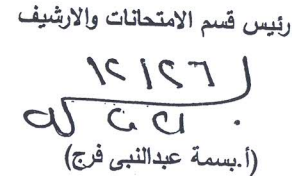 رئيس قسم الامتحانات والارشيف
١٢/٢٦
(أ.بسمة عبدالنبى فرج)